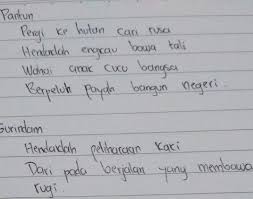 Pantun
Pergi ke hutan cari rusa
Hendaklah engkau bawa tali
Wahai anak cucu bangsa
Berpeluh payah bangun negeri.
Gurindam
Hendaklah peliharaan kaki
Dari pada berjalan yang membawa
rugi.